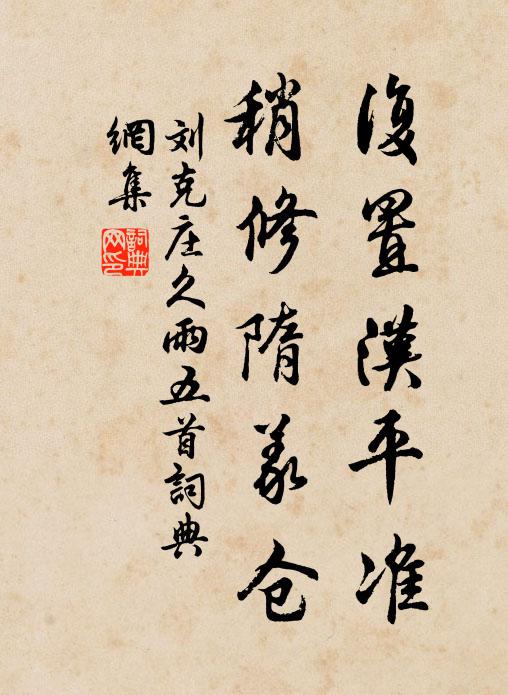 復置漢平准
稍修隋義仓
刘克庄久雨五首詞典
網集
詞典
网印